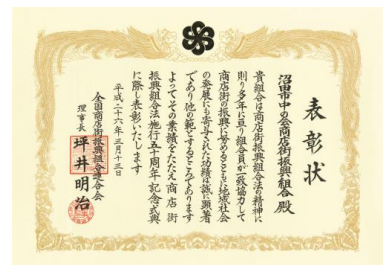 表彰状
沼田市中の会商店街振興組合殿
貴組合は商店街振興組合法の精神に
則り多年に亘り組合員が一致協力して
商店街の振興に努めるとともに地域社会
の発展にも寄与された功績は誠に顕著
であり他の範とするところであります
よってその業績をたたえ商店街
振興組合法施行五十周年記念式典
に際し表彰いたします
平成二十六年三月十三日
全国商店街振興組合連合会
理事長 坪井明治